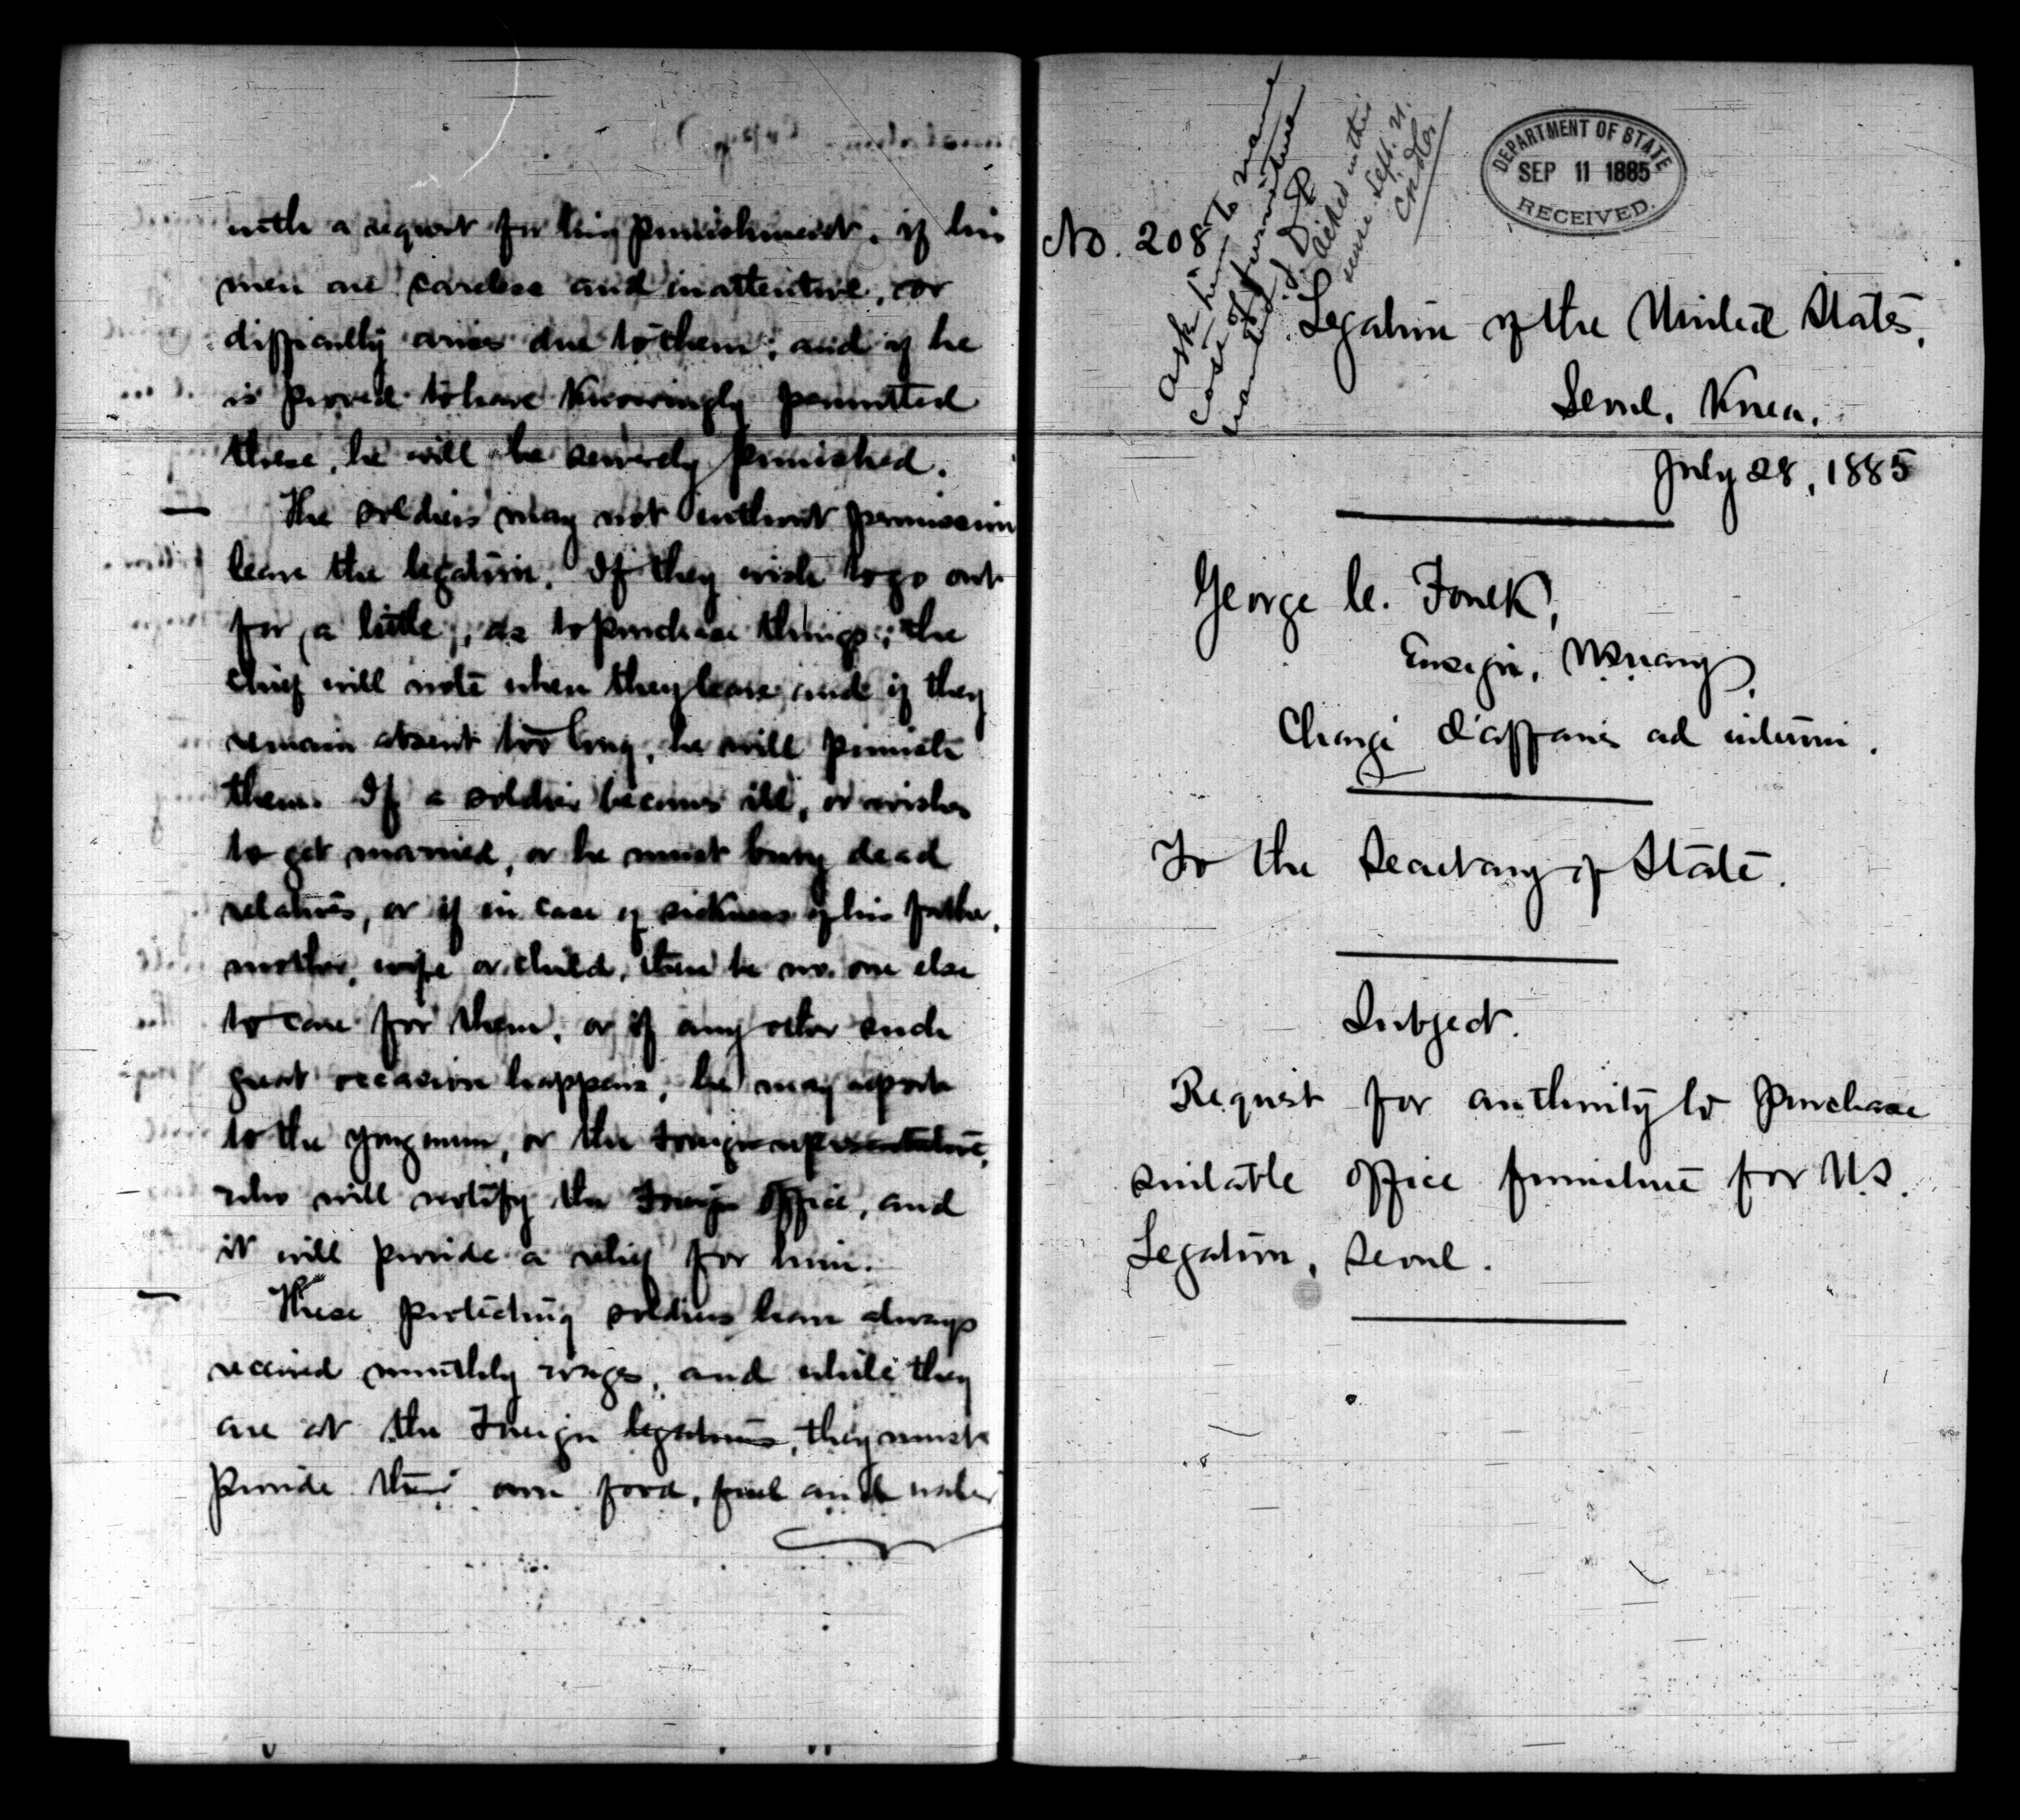 with a request for his punishment, if his
men are careless and inattentive, or
difficulty arises due to them; and if he
is proved to have knowingly permitted
these, he will be severely punished.
— The soldiers may not without permission
leave the legation. If they wish to go out
for a little, as to purchase things, the
chief will note when they leave, and if they
remain absent too long, he will punish
them. If a soldier becomes ill, or wishes
to get married, or he must bury dead
relatives, or if in case of sickness of his father,
mother, wife or child, there be no one else
to care for them, or if any other such
great occasion happens, he may report
to the yongmun, or the Foreign representative,
who will notify the Foreign Office, and
it will provide a relief for him.
— These protecting soldiers have always
received monthly wages, and while they
are at the Foreign legations, they must
provide their own food, fuel and water
DEPARTMENT OF STATE
SEP 11 1885
RECEIVED.
Ask him to name
cost of furniture
wanted
Acted on this
Sept. 21.
No. 208
Legation of the United States,
Seoul, Korea.
July 28, 1885
George C. Foulk,
Ensign, U.S. Navy,
Chargé d'affaires ad interim.
To the Secretary of State.
Subject.
Request for authority to purchase
suitable office furniture for U.S.
Legation, Seoul.